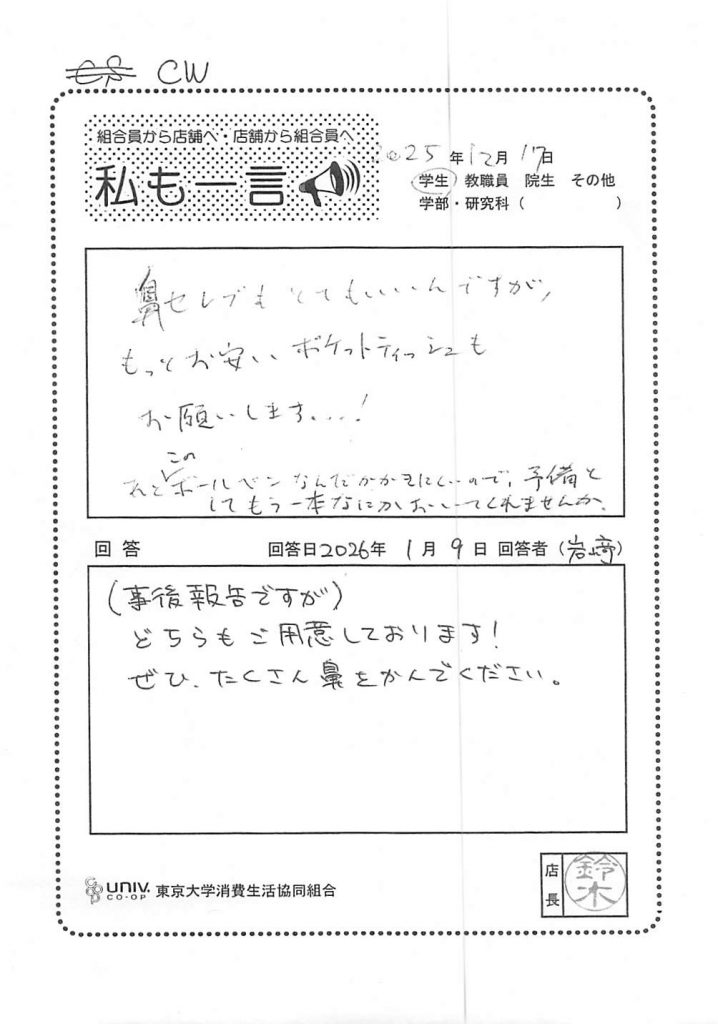 CW
組合員から店舗へ・店舗から組合員へ
私も一言
2025年12月17日
学生 教職員 院生 その他
学部・研究科( )
鼻セレブもとてもいいんですが、
もっとお安いポケットティッシュも
お願いします....!
この
あとボールペンなんだかかきにくいので、予備と
してもう一本なにかおいてくれませんか。
回答 回答日2026年1月9日 回答者(岩﨑)
(事後報告ですが)
どちらもご用意しております!
ぜひ、たくさん鼻をかんでください。
UNIV. CO-OP 東京大学消費生活協同組合
店長 鈴木